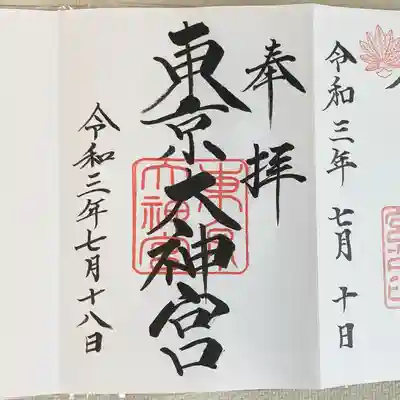 令和三年 七月 十日
奉拝
東京大神宮
東京大神宮
令和三年七月十八日